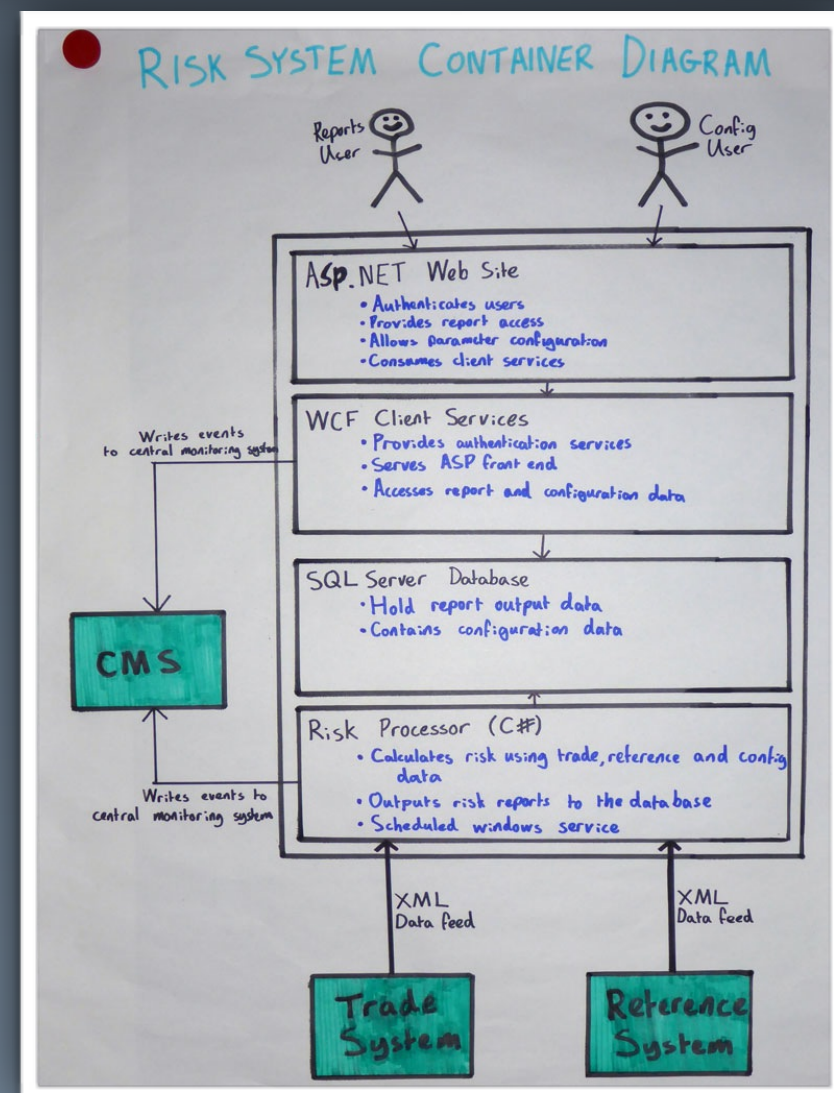 RISK SYSTEM CONTAINER DIAGRAM
Reports
User
Config
User
ASP.NET Web Site
• Authenticates users
• Provides report access
• Allows parameter configuration
• Consumes client services
WCF Client Services
• Provides authentication services
• Serves ASP front end
• Accesses report and configuration data
Writes events
to central monitoring system
SQL Server Database
• Hold report output data
• Contains configuration data
CMS
Risk Processor (C#)
• Calculates risk using trade, reference and config
data
• Outputs risk reports to the database
• Scheduled windows service
Writes events to
central monitoring system
XML
Data feed
XML
Data feed
Trade
System
Reference
System